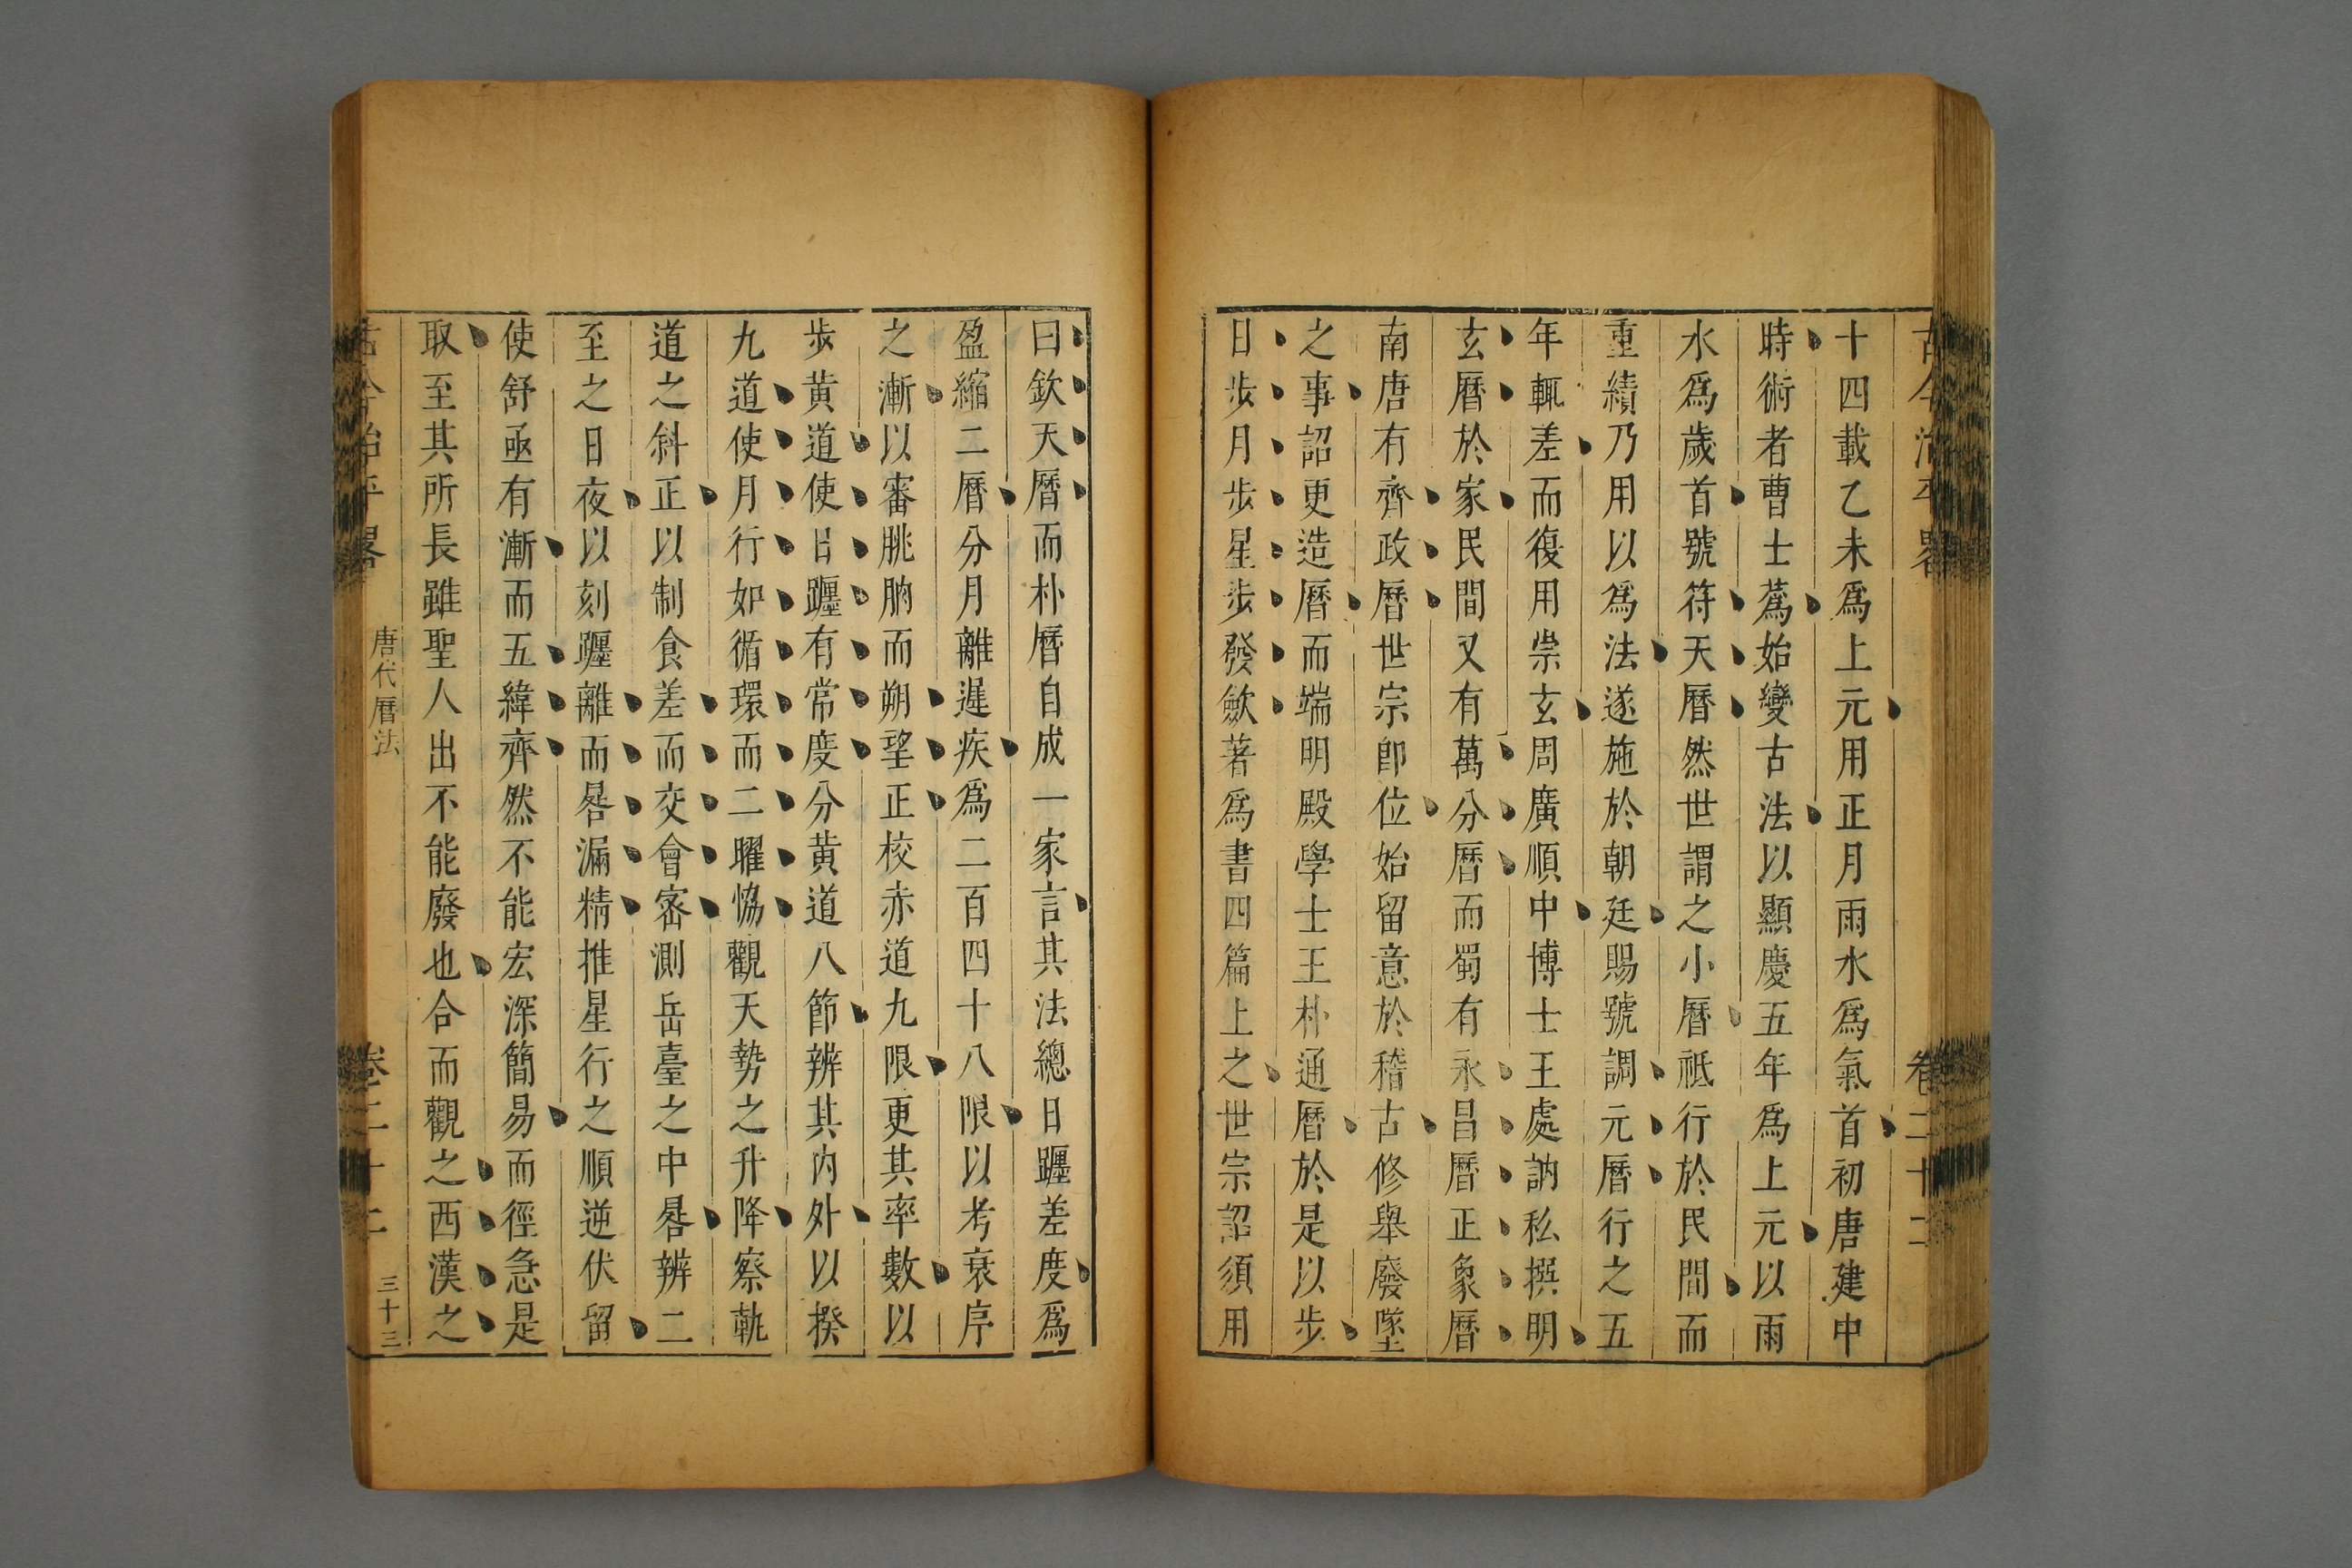 古今治平畧 卷二十二
十四載乙未爲上元用正月雨水爲氣首初唐建中
時術者曹士蔿始變古法以顯慶五年爲上元以雨
水爲歲首號符天曆然世謂之小曆祗行於民間而
重績乃用以爲法遂施於朝廷賜號調元曆行之五
年輒差而復用崇玄周廣順中博士王處訥私撰明
玄曆於家民間又有萬分曆而蜀有永昌曆正象曆
南唐有齊政曆世宗卽位始留意於稽古修舉廢墜
之事詔更造曆而端明殿學士王朴通曆於是以步
日步月步星步發歛著爲書四篇上之世宗詔須用
曰欽天曆而朴曆自成一家言其法總日躔差度爲
盈縮二曆分月離遲疾爲二百四十八限以考衰序
之漸以審朓朒而朔望正校赤道九限更其率數以
步黄道使日躔有常度分黄道八節辨其内外以揆
九道使月行如循環而二曜恊觀天勢之升降察軌
道之斜正以制食差而交會密測岳臺之中晷辨二
至之日夜以刻躔離而晷漏精推星行之順逆伏留
使舒亟有漸而五緯齊然不能宏深簡易而徑急是
取至其所長雖聖人出不能廢也合而觀之西漢之
古今治平畧 唐代曆法 卷二十二 三十三